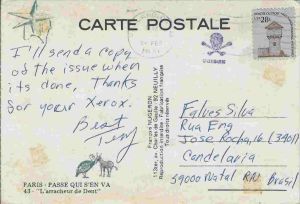 CARTE POSTALE
I'll send a copy
of the issue when
its done, Thanks
for your Xerox.
Best
PARIS - PASSE QUI S'EN VA
43 - "L'arracheur de Dent"
François NUGERON
Reproduction interdite - Fabrication française
28c
Falves Silva
Rua Eng
Jose Rocha, 16 (3401)
Candelaria
59000 Natal RN
Brasil